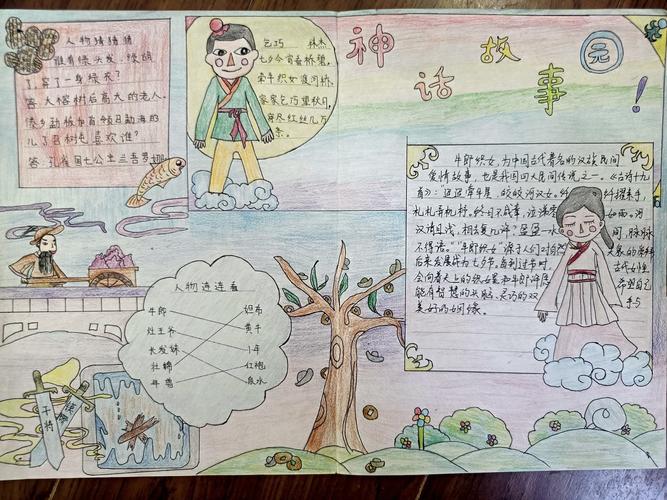 神话故事园！
人物猜猜猜
谁有绿头发，绿胡
了一身绿衣？
答：大榕树后高大的老人。
儿了召树屯喜欢谁？
答：孔雀国七公主
乞巧 林杰
七夕今宵看碧霄，
牵牛织女渡河桥。
家家乞巧望秋月，
穿尽红丝几万
条。
牛郎织女，为中国古代著名的汉族民间
爱情故事，也是我国四大民间传说之一。《古诗十九
首》：迢迢牵牛星，皎皎河汉女。纤纤擢素手，
札札弄机杼。终日不成章，泣涕零如雨。河
汉清且浅，相去复几许？盈盈一水间，脉脉
不得语。"牛郎织女"源于人们对自然
后来发展成为七夕节。每到过节时，古代妇女
会向着天上的织女星和牛郎星 希望自己
能有智慧的 灵巧的双手与
美好的姻缘。
人物连连看
牛郎 织布
灶王爷 黄牛
长发妹 1年
牡蛎 红袍
年兽 泉水
干将
莫邪